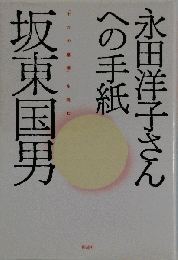 永田洋子さん
への手紙
坂東国男